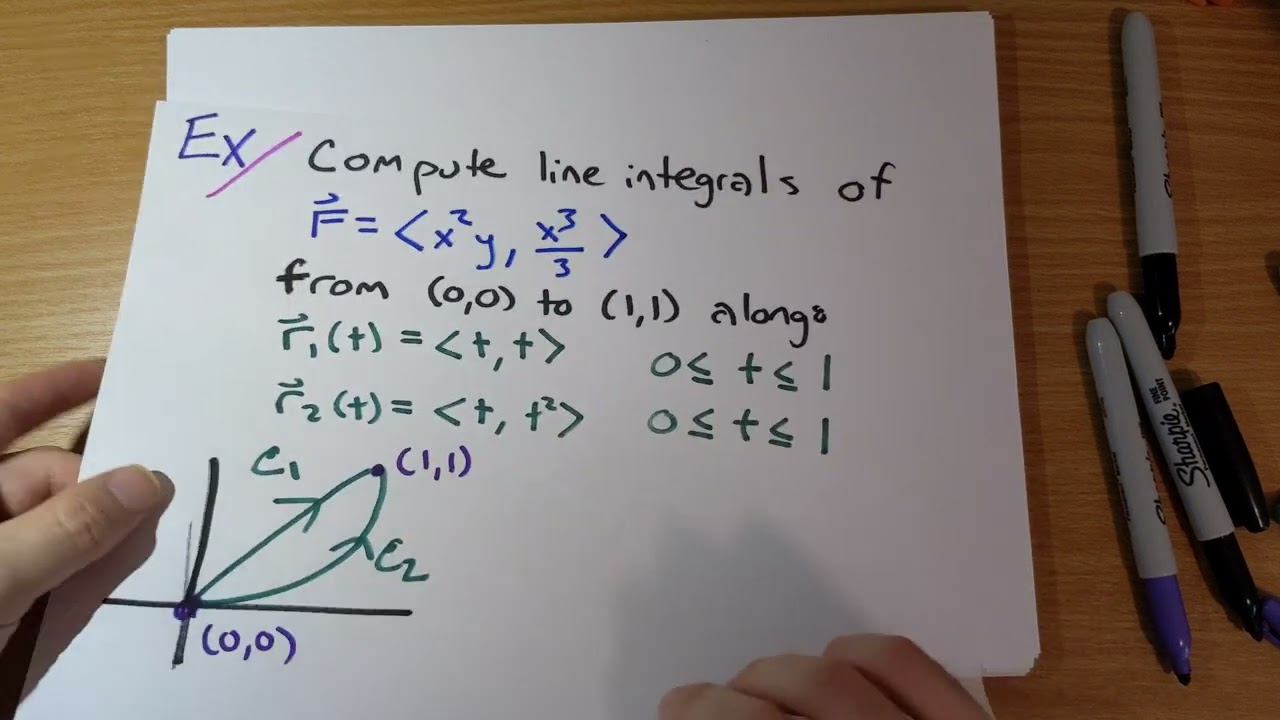 Ex/ Compute line integrals of
F⃗ = <x²y, x³/3>
from (0,0) to (1,1) along:
r⃗₁(t) = <t, t> 0 ≤ t ≤ 1
r⃗₂(t) = <t, t²> 0 ≤ t ≤ 1
C₁ (1,1)
C₂
(0,0)
Sharpie
FINE POINT